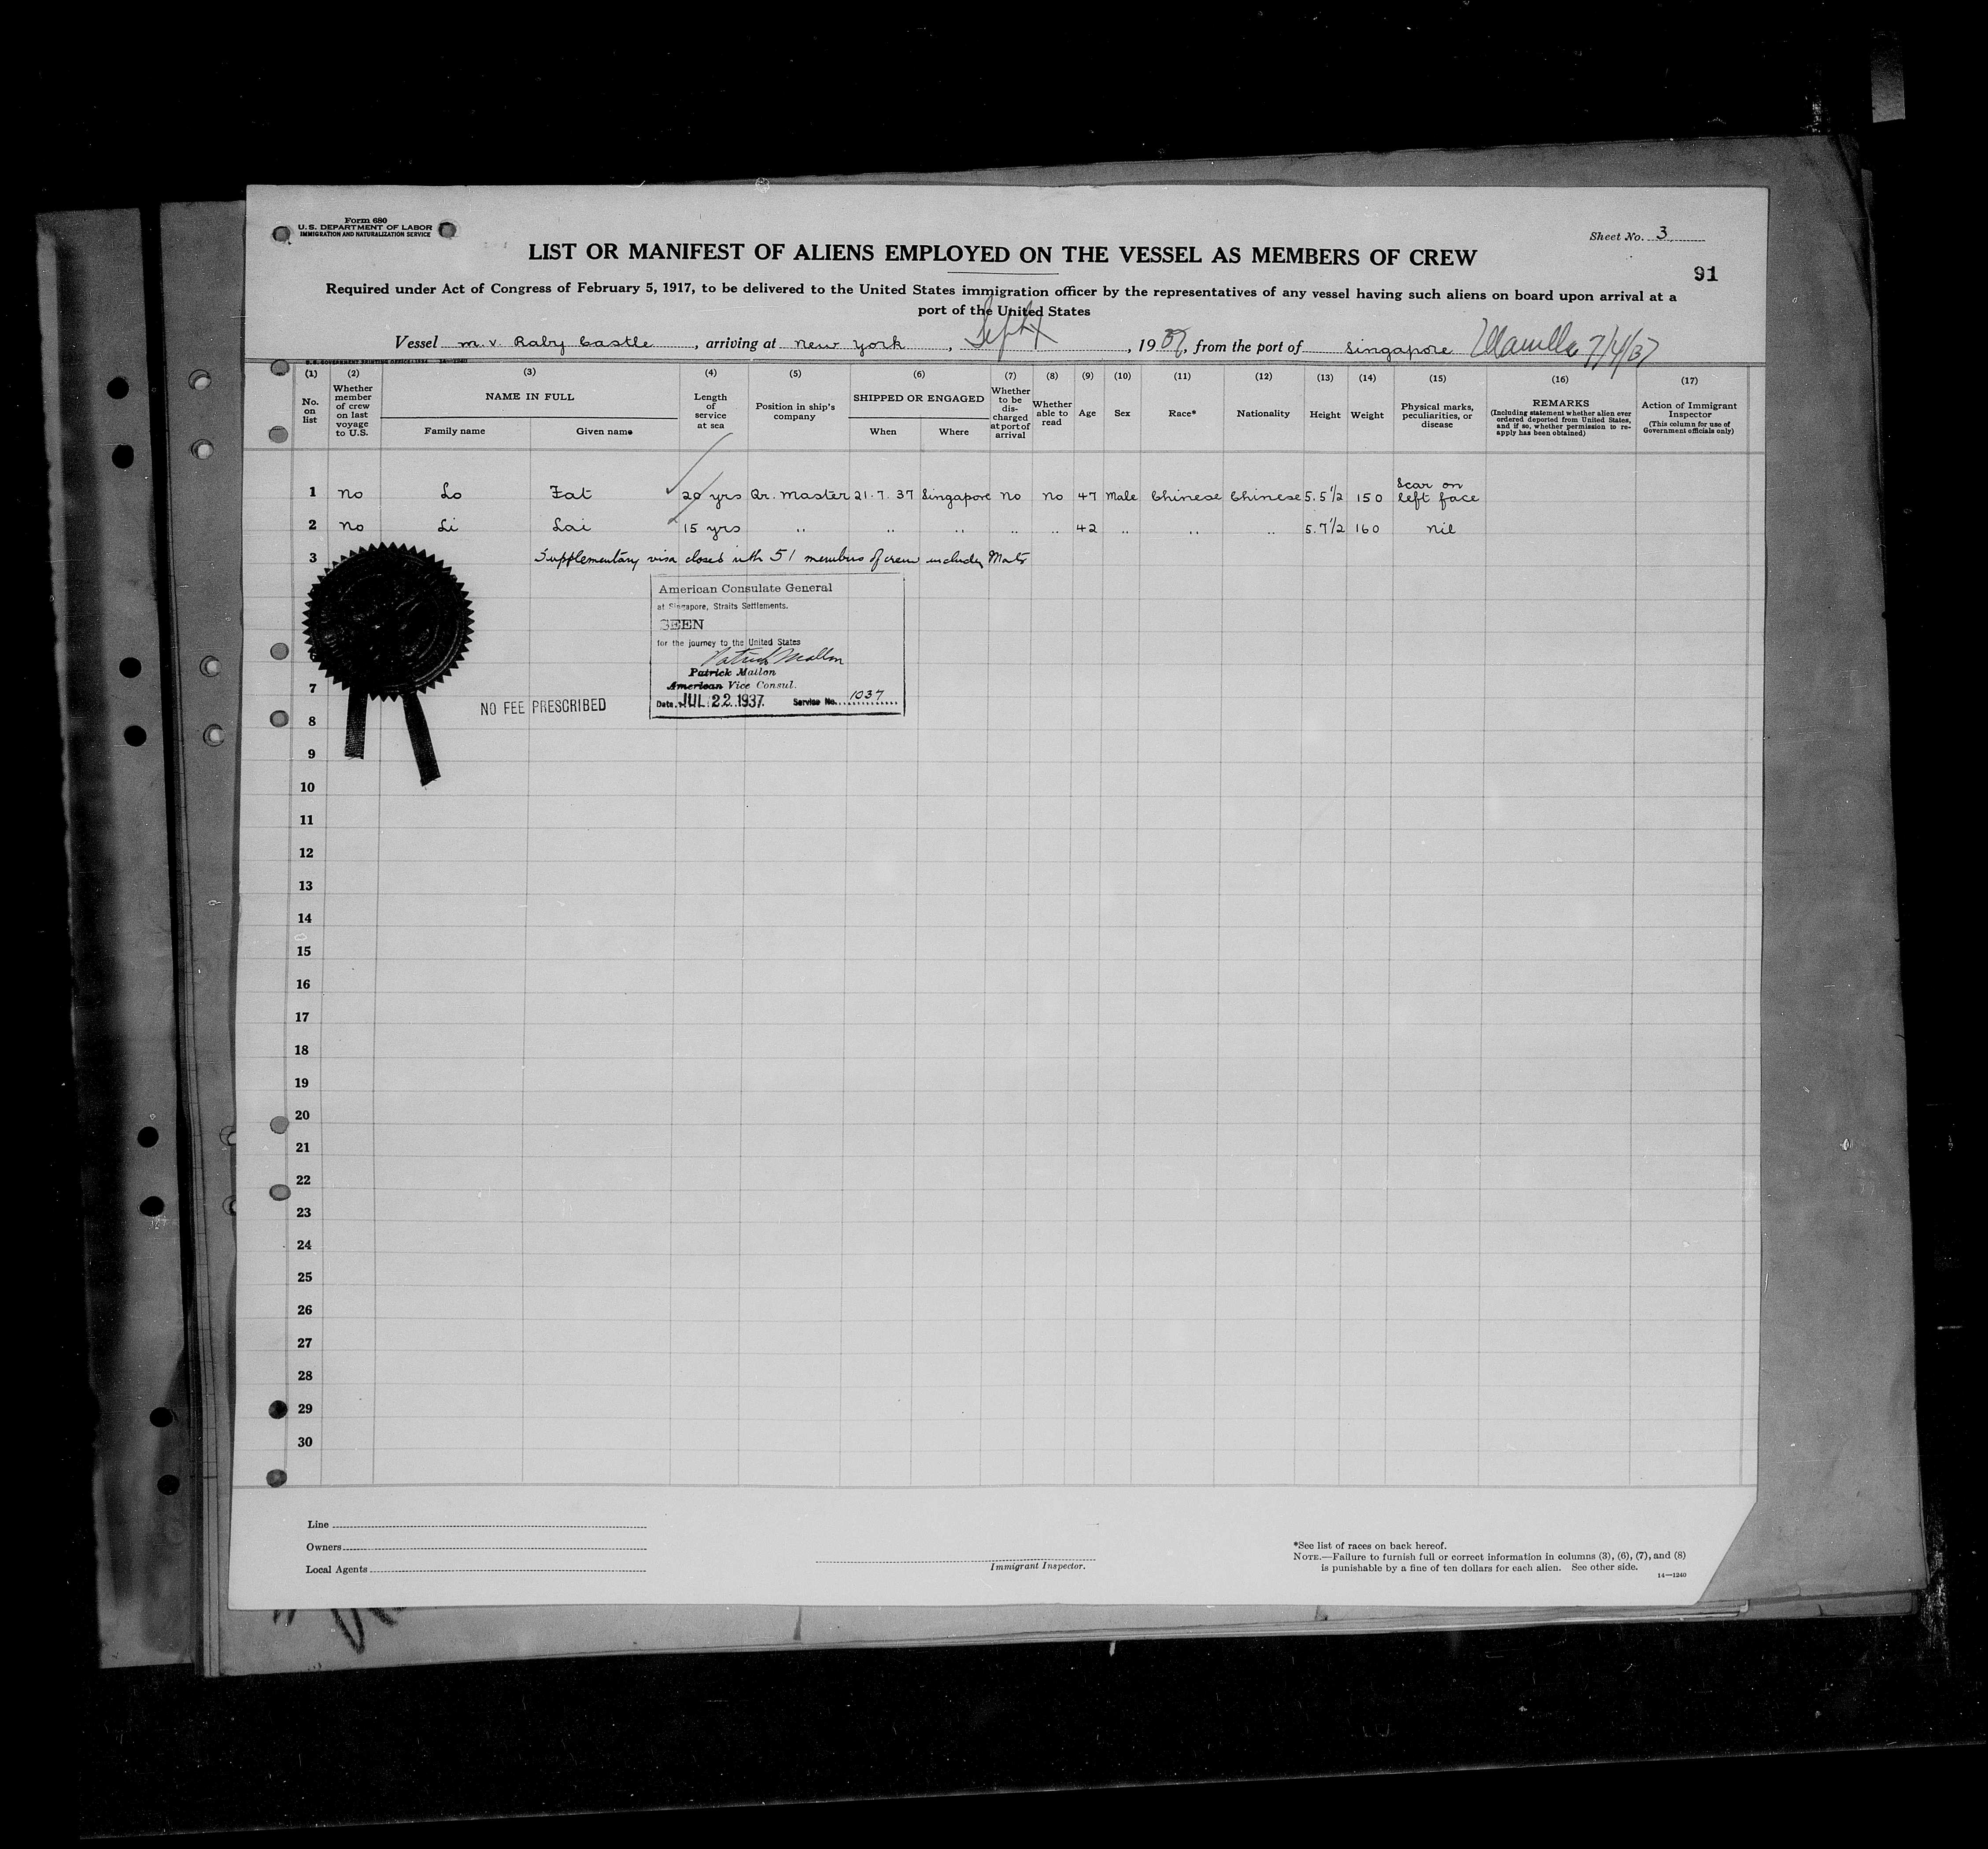 Form 680
U.S. DEPARTMENT OF LABOR
IMMIGRATION AND NATURALIZATION SERVICE
Sheet No. 3
LIST OR MANIFEST OF ALIENS EMPLOYED ON THE VESSEL AS MEMBERS OF CREW
91
Required under Act of Congress of February 5, 1917, to be delivered to the United States immigration officer by the representatives of any vessel having such aliens on board upon arrival at a
port of the United States
Vessel m.v. Raby Castle, arriving at new york, Sept, 1937, from the port of Singapore
(1) (2) (3) (4) (5) (6) (7) (8) (9) (10) (11) (12) (13) (14) (15) (16) (17)
No. on list
Whether member of crew on last voyage to U.S.
NAME IN FULL
Family name
Given name
Length of service at sea
Position in ship's company
SHIPPED OR ENGAGED
When
Where
Whether to be discharged at port of arrival
Whether able to read
Age
Sex
Race*
Nationality
Height
Weight
Physical marks, peculiarities, or disease
REMARKS
(Including statement whether alien ever ordered deported from United States, and if so, whether permission to reapply has been obtained)
Action of Immigrant Inspector
(This column for use of Government officials only)
1 no Lo Fat 20 yrs Qr. Master 21.7.37 Singapore no no 47 Male Chinese Chinese 5.5½ 150 Scar on left face
2 no Li Lai 15 yrs " " " " " 42 " " " 5.7½ 160 nil
3 Supplementary visa closed with 51 members of crew including Master
American Consulate General
at Singapore, Straits Settlements.
SEEN
for the journey to the United States
Patrick Mallon
Patrick Mallon
American Vice Consul.
Date. JUL 22 1937. Service No. 1037
NO FEE PRESCRIBED
7
8
9
10
11
12
13
14
15
16
17
18
19
20
21
22
23
24
25
26
27
28
29
30
Line
Owners
Local Agents
Immigrant Inspector.
*See list of races on back hereof.
NOTE.—Failure to furnish full or correct information in columns (3), (6), (7), and (8)
is punishable by a fine of ten dollars for each alien. See other side.
14—1240